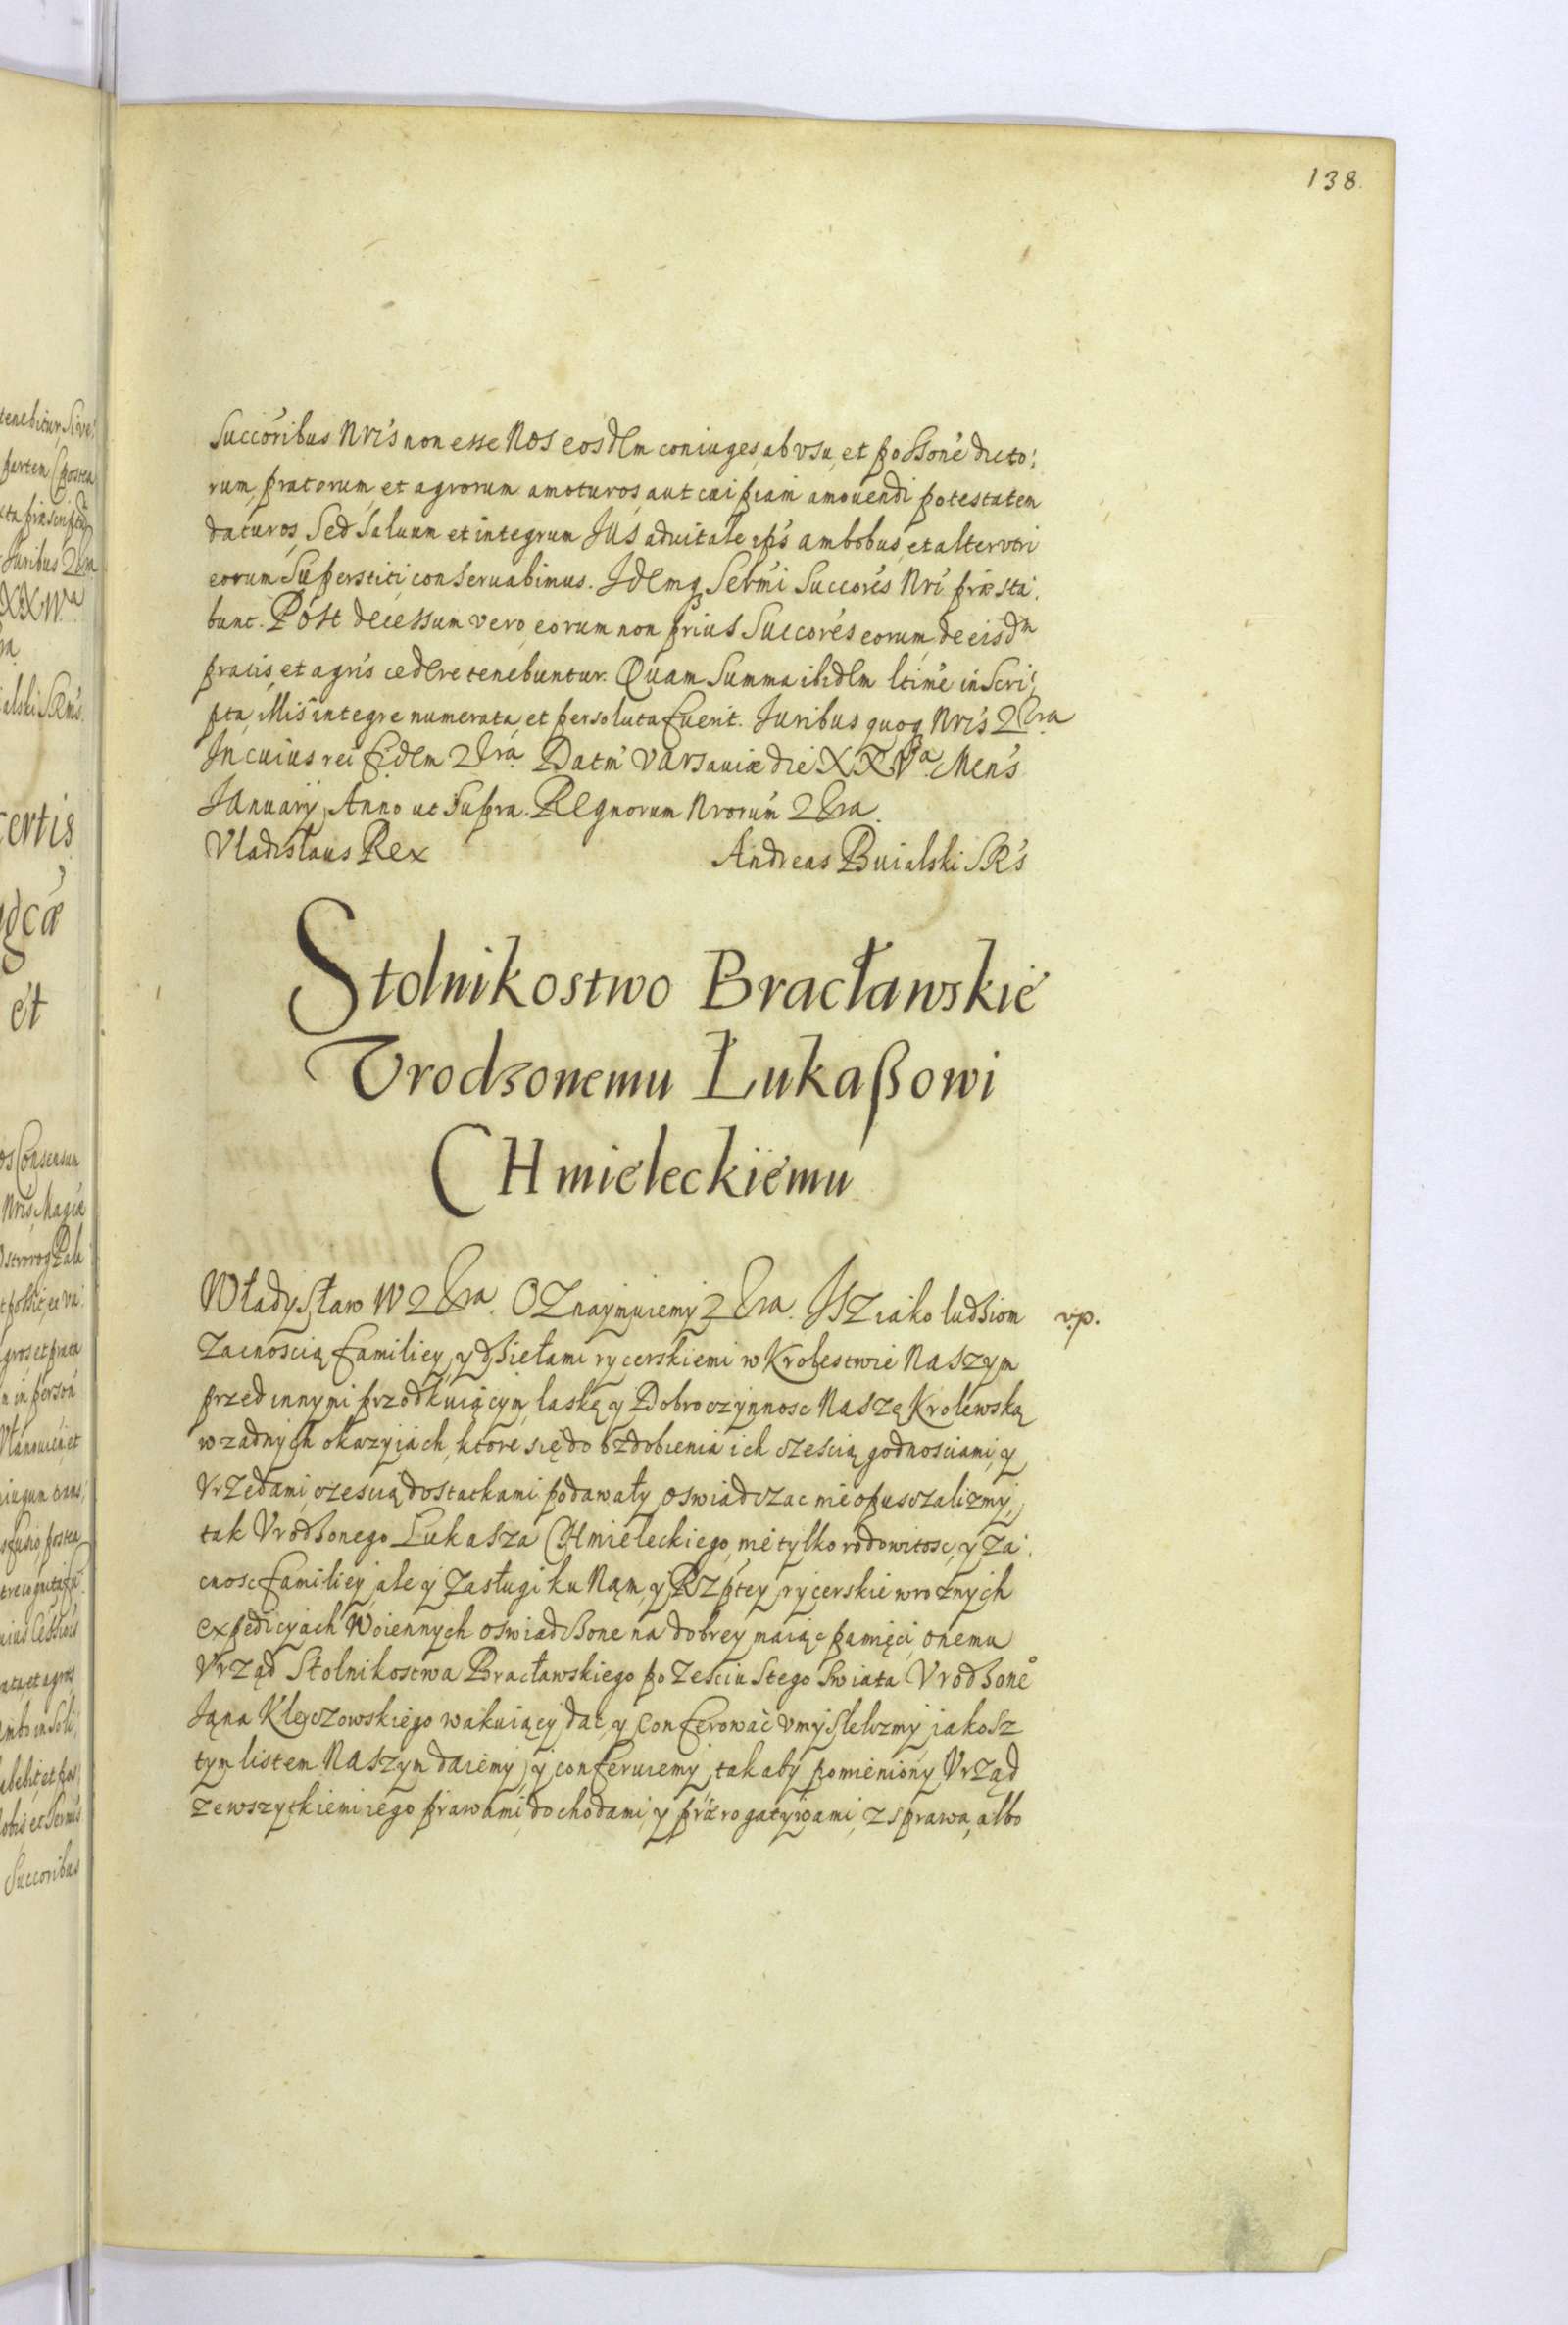 138.
Succoribus Nris non esse Nos eosdem coniuges, ab vsu, et possone dicto:
rum pratorum et agrorum amoturos, aut cuipiam amouendi potestatem
daturos, Sed Saluum et integrum Jus aduitale ipis ambobus, et altervtri
eorum Superstiti conseruabimus. Idemq Sermi Succores Nri præsta:
bunt. Post decessum vero eorum non prius Succores eorum de eisdm
pratis et agris cedere tenebuntur. Quam Summa ibidem ltime inscri:
pta, illis integre numerata, et persoluta fuerit. Juribus quoq Nris 2bra.
In cuius rei fidem 2bra. Datm Varsauiæ die XXVa. Mens
January, Anno ut supra. Regnorum Nrorum 2bra.
Vladislaus Rex
Andreas Buialski SRs
Stolnikostwo Bracławskie
Vrodzonemu Łukaßowi
CHmieleckiemu
Władysław IV 2bra. Oznaymuiemy 2bra. Isz iako ludziom
v.p.
Zacnoscią familiey, y dziełami rycerskiemi w Krolestwie Naszym
przed innymi przodkuiącym, laskę y Dobroczynnosc Naszę Krolewską
w zadnych okazyiach, ktore się do ozdobienia ich czescią godnosciami, y
Vrzedami, czescią dostatkami podawały, oswiadczac nie opusczalizmy,
tak Vrodzonego Lukasza CHmieleckiego, nie tylko rodowitosc, y Za:
cnosc familiey, ale y Zasługi ku Nąm, y Rszptey rycerskie w roznych
expedicyach Woiennych oswiadczone na dobrey maiąc pamięci, onemu
Vrząd Stolnikostwa Bracławskiego po Zesciu Stego Swiata Vrodzone°
Jąna Kleczowskiego wakuiący dac, y Conferowac vmyslelizmy, jakosz
tym listem Naszym daiemy, y conferuiemy, tak aby pomieniony Vrząd
zewszytkiemi iego prawami, dochodami, y prærogatywami, z sprawa, albo